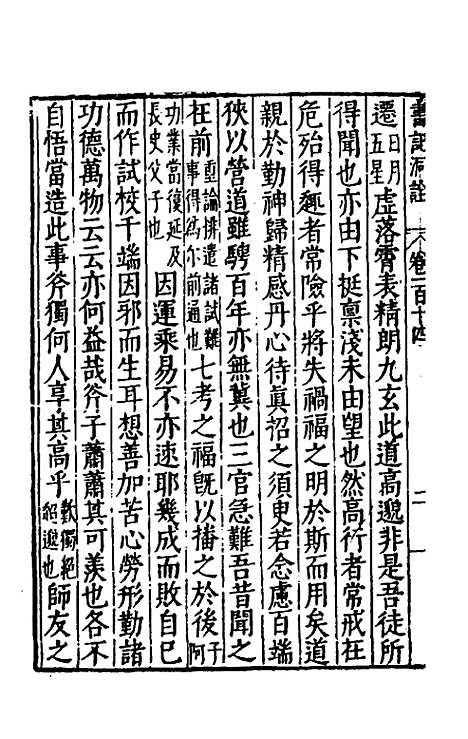 書記洞詮 卷一百十四 二
遷日月五星虛落霄表精朗九玄此道高邈非是吾徒所
得聞也亦由下挺稟淺未由望也然高行者常戒在
危殆得趣者常險乎將失禍福之明於斯而用矣道
親於勤神歸精感丹心待眞招之須臾若念慮百端
狹以營道雖騁百年亦無冀也三官急難吾昔聞之
在前重論排遣諸試難事得為尒前通也七考之福旣以播之於後子阿
功業當復延及長史父子也因運乘易不亦速耶幾成而敗自已
而作試校千端因邪而生耳想善加苦心勞形勤諸
功德萬物云云亦何益哉斧子蕭蕭其可羨也各不
自悟當造此事斧獨何人享其高乎歎獨絕紹邈也師友之